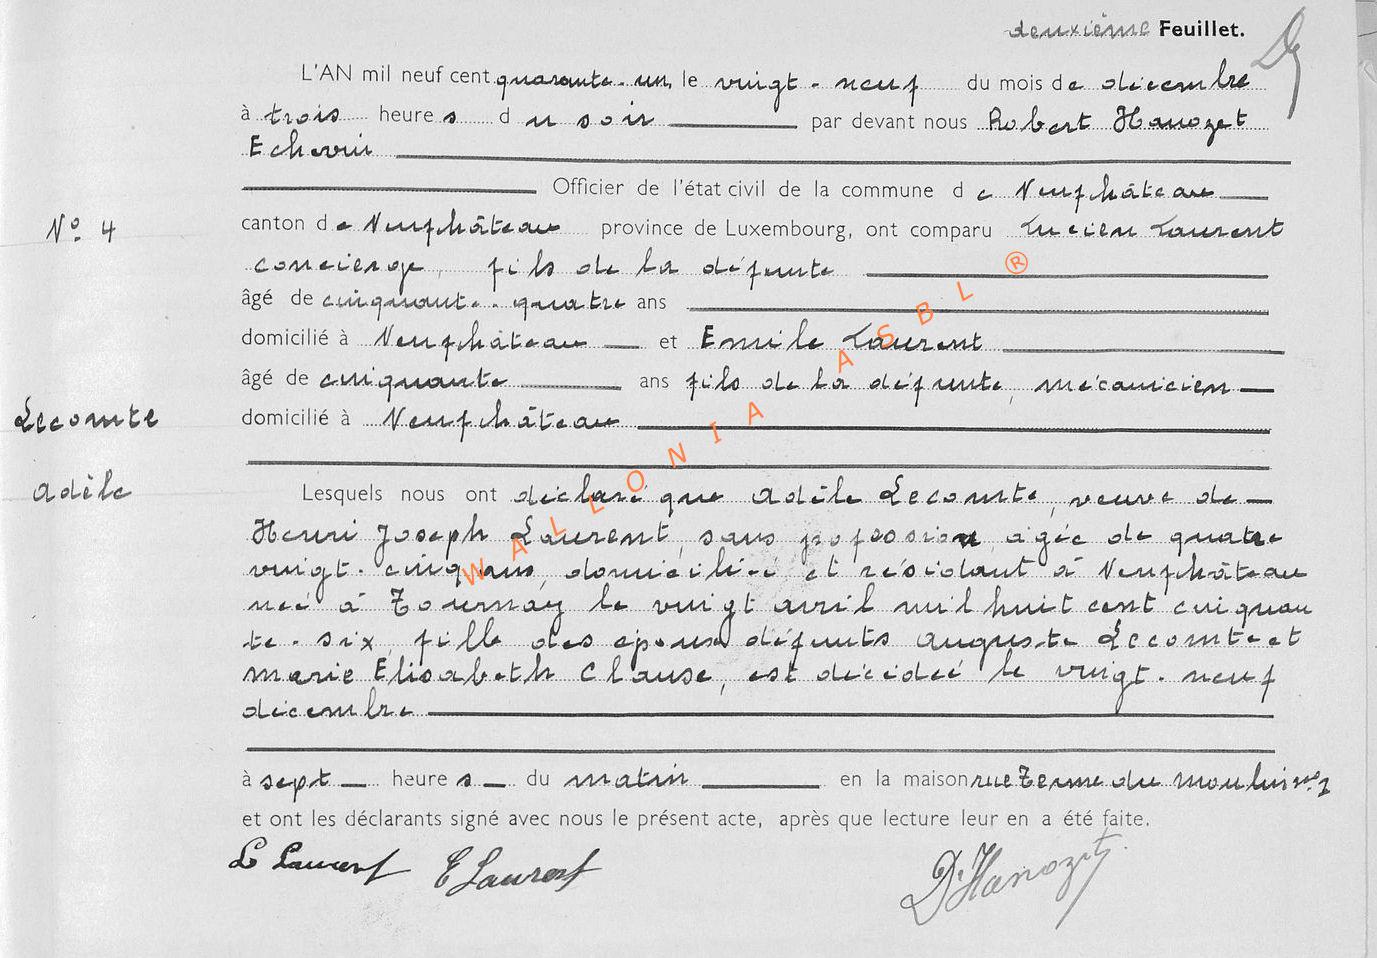 deuxième Feuillet.
L'AN mil neuf cent quarante-un, le vingt-neuf du mois de décembre
à trois heures du soir par devant nous Robert Hanozet
Echevin
Officier de l'état civil de la commune de Neufchâteau
N° 4
canton de Neufchâteau province de Luxembourg, ont comparu Lucien Laurent
concierge, fils de la défunte
âgé de cinquante-quatre ans
domicilié à Neufchâteau et Emile Laurent
âgé de cinquante ans fils de la défunte, mécanicien
Lecomte
domicilié à Neufchâteau
Adèle
Lesquels nous ont déclaré que Adèle Lecomte, veuve de
Henri Joseph Laurent, sans profession, agée de quatre
vingt-cinq ans, domiciliée et résidant à Neufchâteau
née à Tournay le vingt avril mil huit cent cinquan
te-six, fille des epoux défunts Auguste Lecomte et
Marie Elisabeth Clause, est décédée le vingt-neuf
décembre
à sept heures du matin en la maison rue Terme du Moulin n° 2
et ont les déclarants signé avec nous le présent acte, après que lecture leur en a été faite.
L Laurent E Laurent Dr Hanozet
WALLONIA ASBL ®